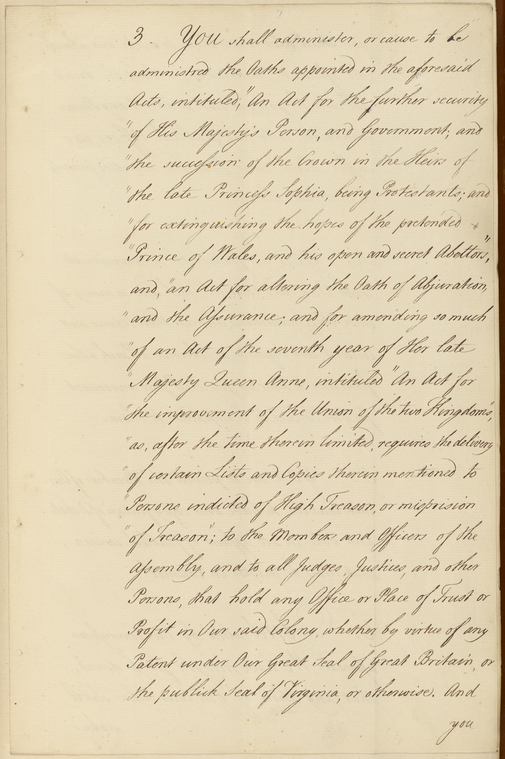 3. You shall administer, or cause to be
administred the Oaths appointed in the aforesaid
Acts, intituled, "An Act for the further security
"of His Majesty's Person, and Government, and
"the succession of the Crown in the Heirs of
"the late Princess Sophia, being Protestants; and
"for extinguishing the hopes of the pretended
"Prince of Wales, and his open and secret Abettors",
and, "an Act for altering the Oath of Abjuration,
"and the Assurance; and for amending so much
"of an Act of the seventh year of Her late
"Majesty Queen Anne, intituled "An Act for
"the improvement of the Union of the two Kingdoms",
"as, after the time therein limited, requires the delivery
"of certain Lists and Copies therein mentioned to
"Persons indicted of High Treason, or misprision
"of Treason"; to the Members and Officers of the
Assembly, and to all Judges, Justices, and other
Persons, that hold any Office or Place of Trust or
Profit in Our said Colony, whether by virtue of any
Patent under Our Great Seal of Great Britain, or
the publick Seal of Virginia, or otherwise. And
you